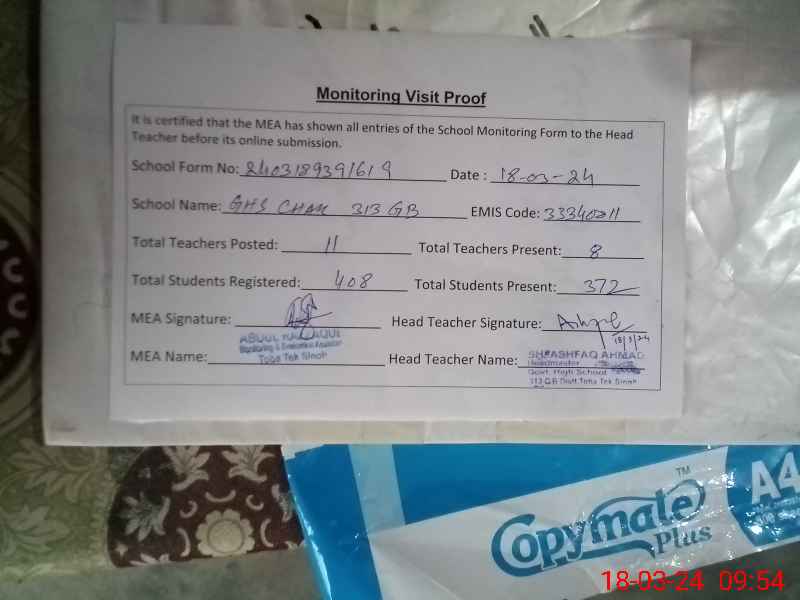 Monitoring Visit Proof
It is certified that the MEA has shown all entries of the School Monitoring Form to the Head
Teacher before its online submission.
School Form No: 2403189391619 Date : 18-03-24
School Name: GHS CHAK 313 GB EMIS Code: 33340011
Total Teachers Posted: 11 Total Teachers Present: 8
Total Students Registered: 408 Total Students Present: 372
MEA Signature: Head Teacher Signature:
18/3/24
MEA Name: Head Teacher Name:
ABDUL
Monitoring & Evaluation Assistant
Toba Tek Singh
ASHFAQ AHMAD
Headmaster
Govt. High School
313 GB Distt. Toba Tek Singh
Copymate TM
Plus
A4
18-03-24 09:54